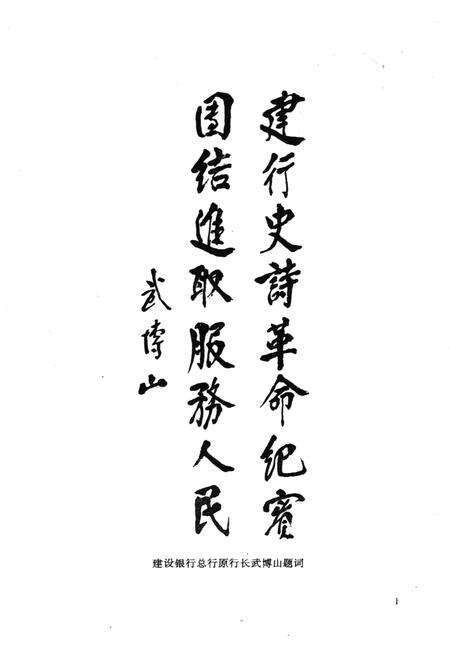 建行史詩革命纪實
团结進取服務人民
武博山
建设银行总行原行长武博山题词
1